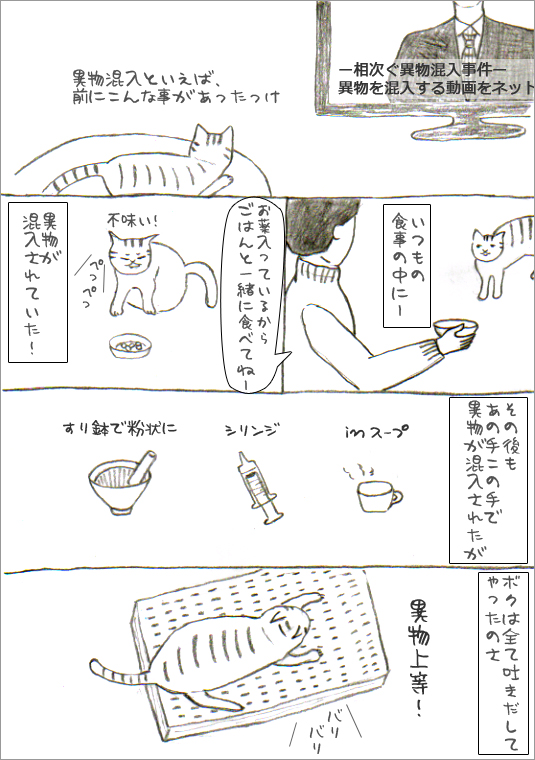 －相次ぐ異物混入事件－
異物を混入する動画をネット
異物混入といえば、
前にこんな事があったっけ
いつもの
食事の中にー
お薬入っているから
ごはんと一緒に食べてねー
不味い!
ぺっぺっ
異物が
混入されていた!
その後も
あの手この手で
異物が混入されたが
inスープ
シリンジ
すり鉢で粉状に
ボクは全て吐きだして
やったのさ
異物上等!
バリ
バリ